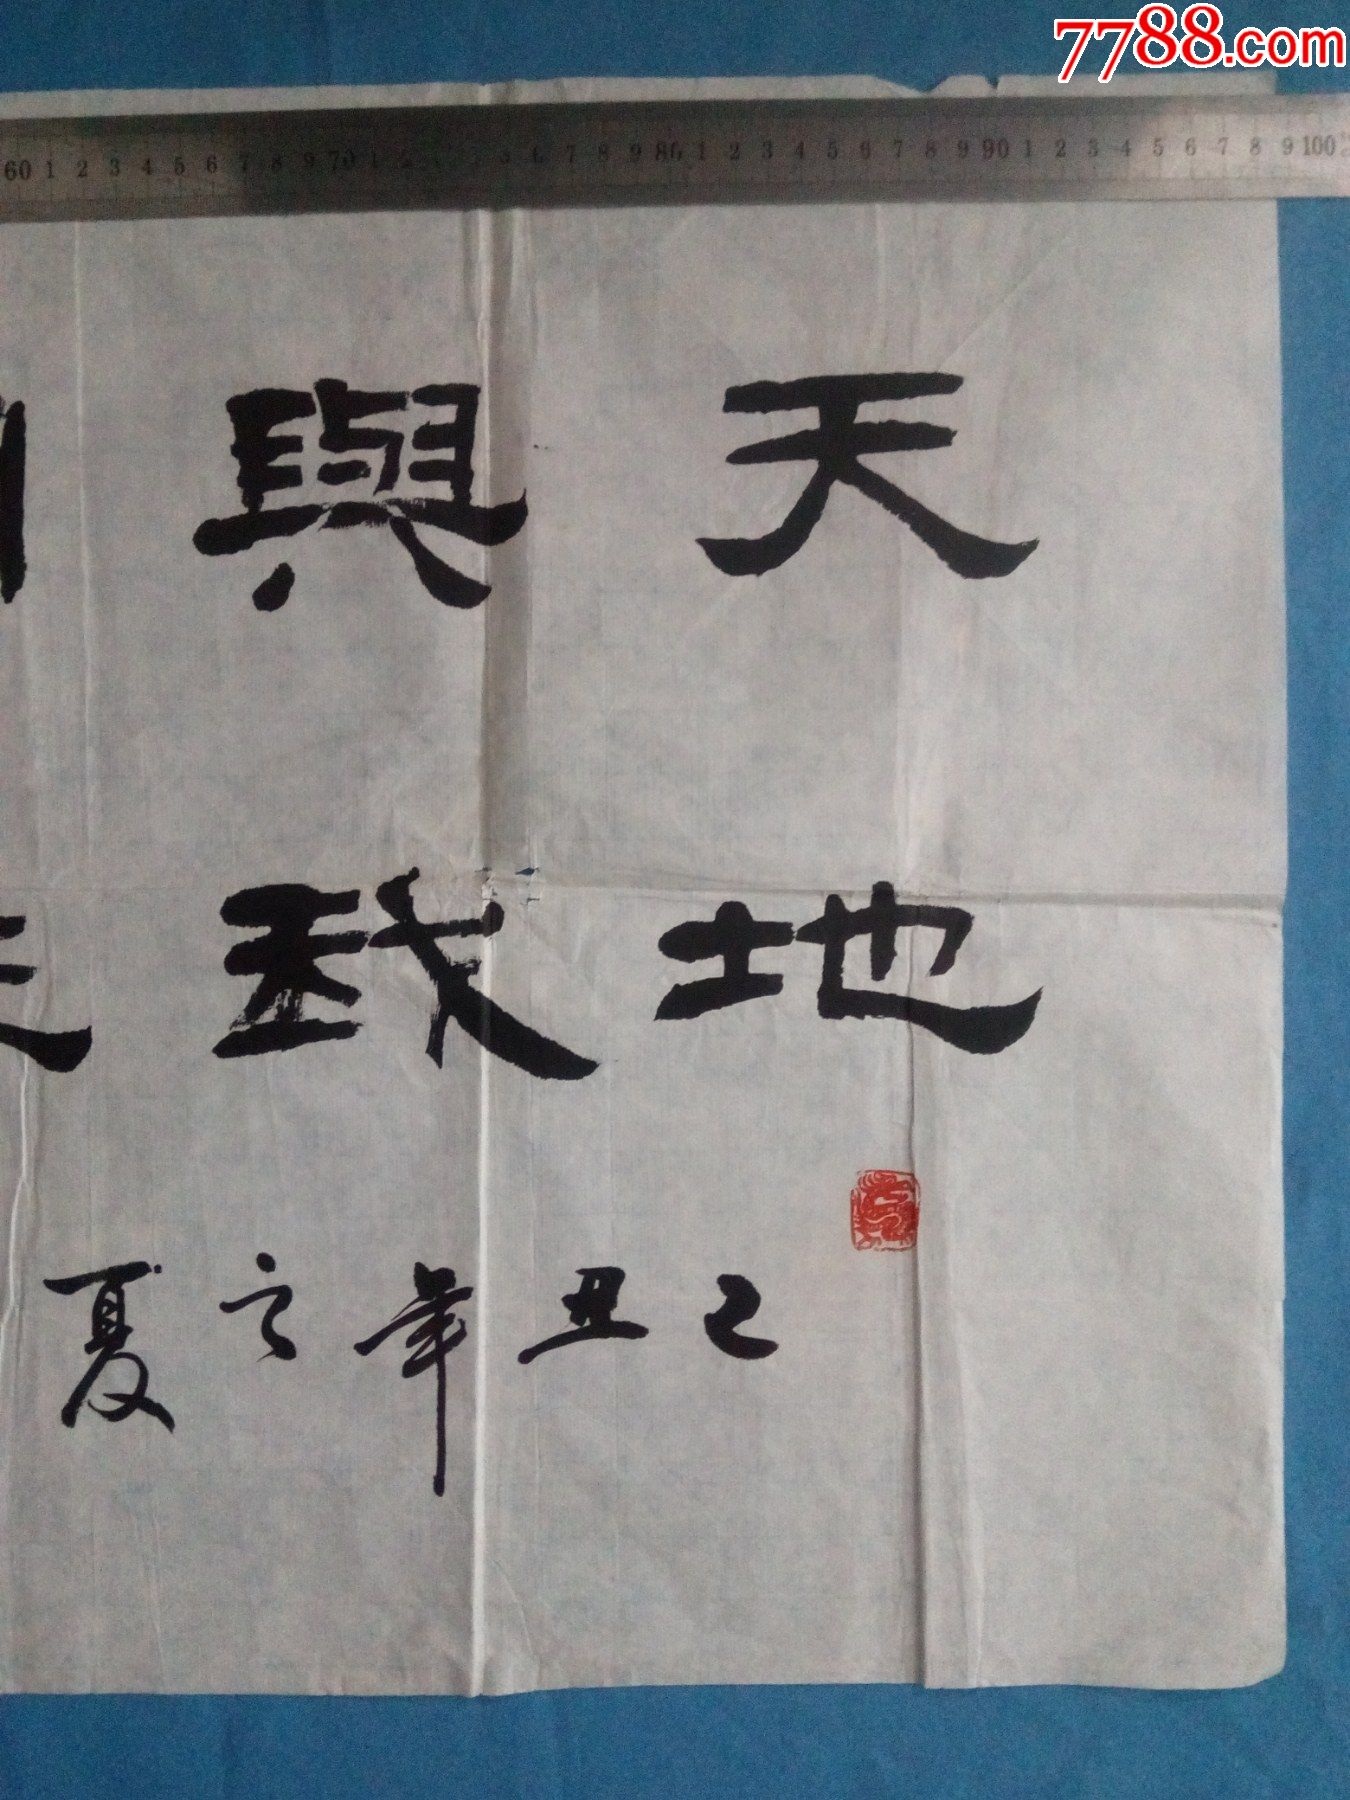 7788.com
60 1 2 3 4 5 6 7 8 9 70 1 2 5 6 7 8 9 80 1 2 3 4 5 6 7 8 9 90 1 2 3 4 5 6 7 8 9 100
天地
與我
己丑年立夏